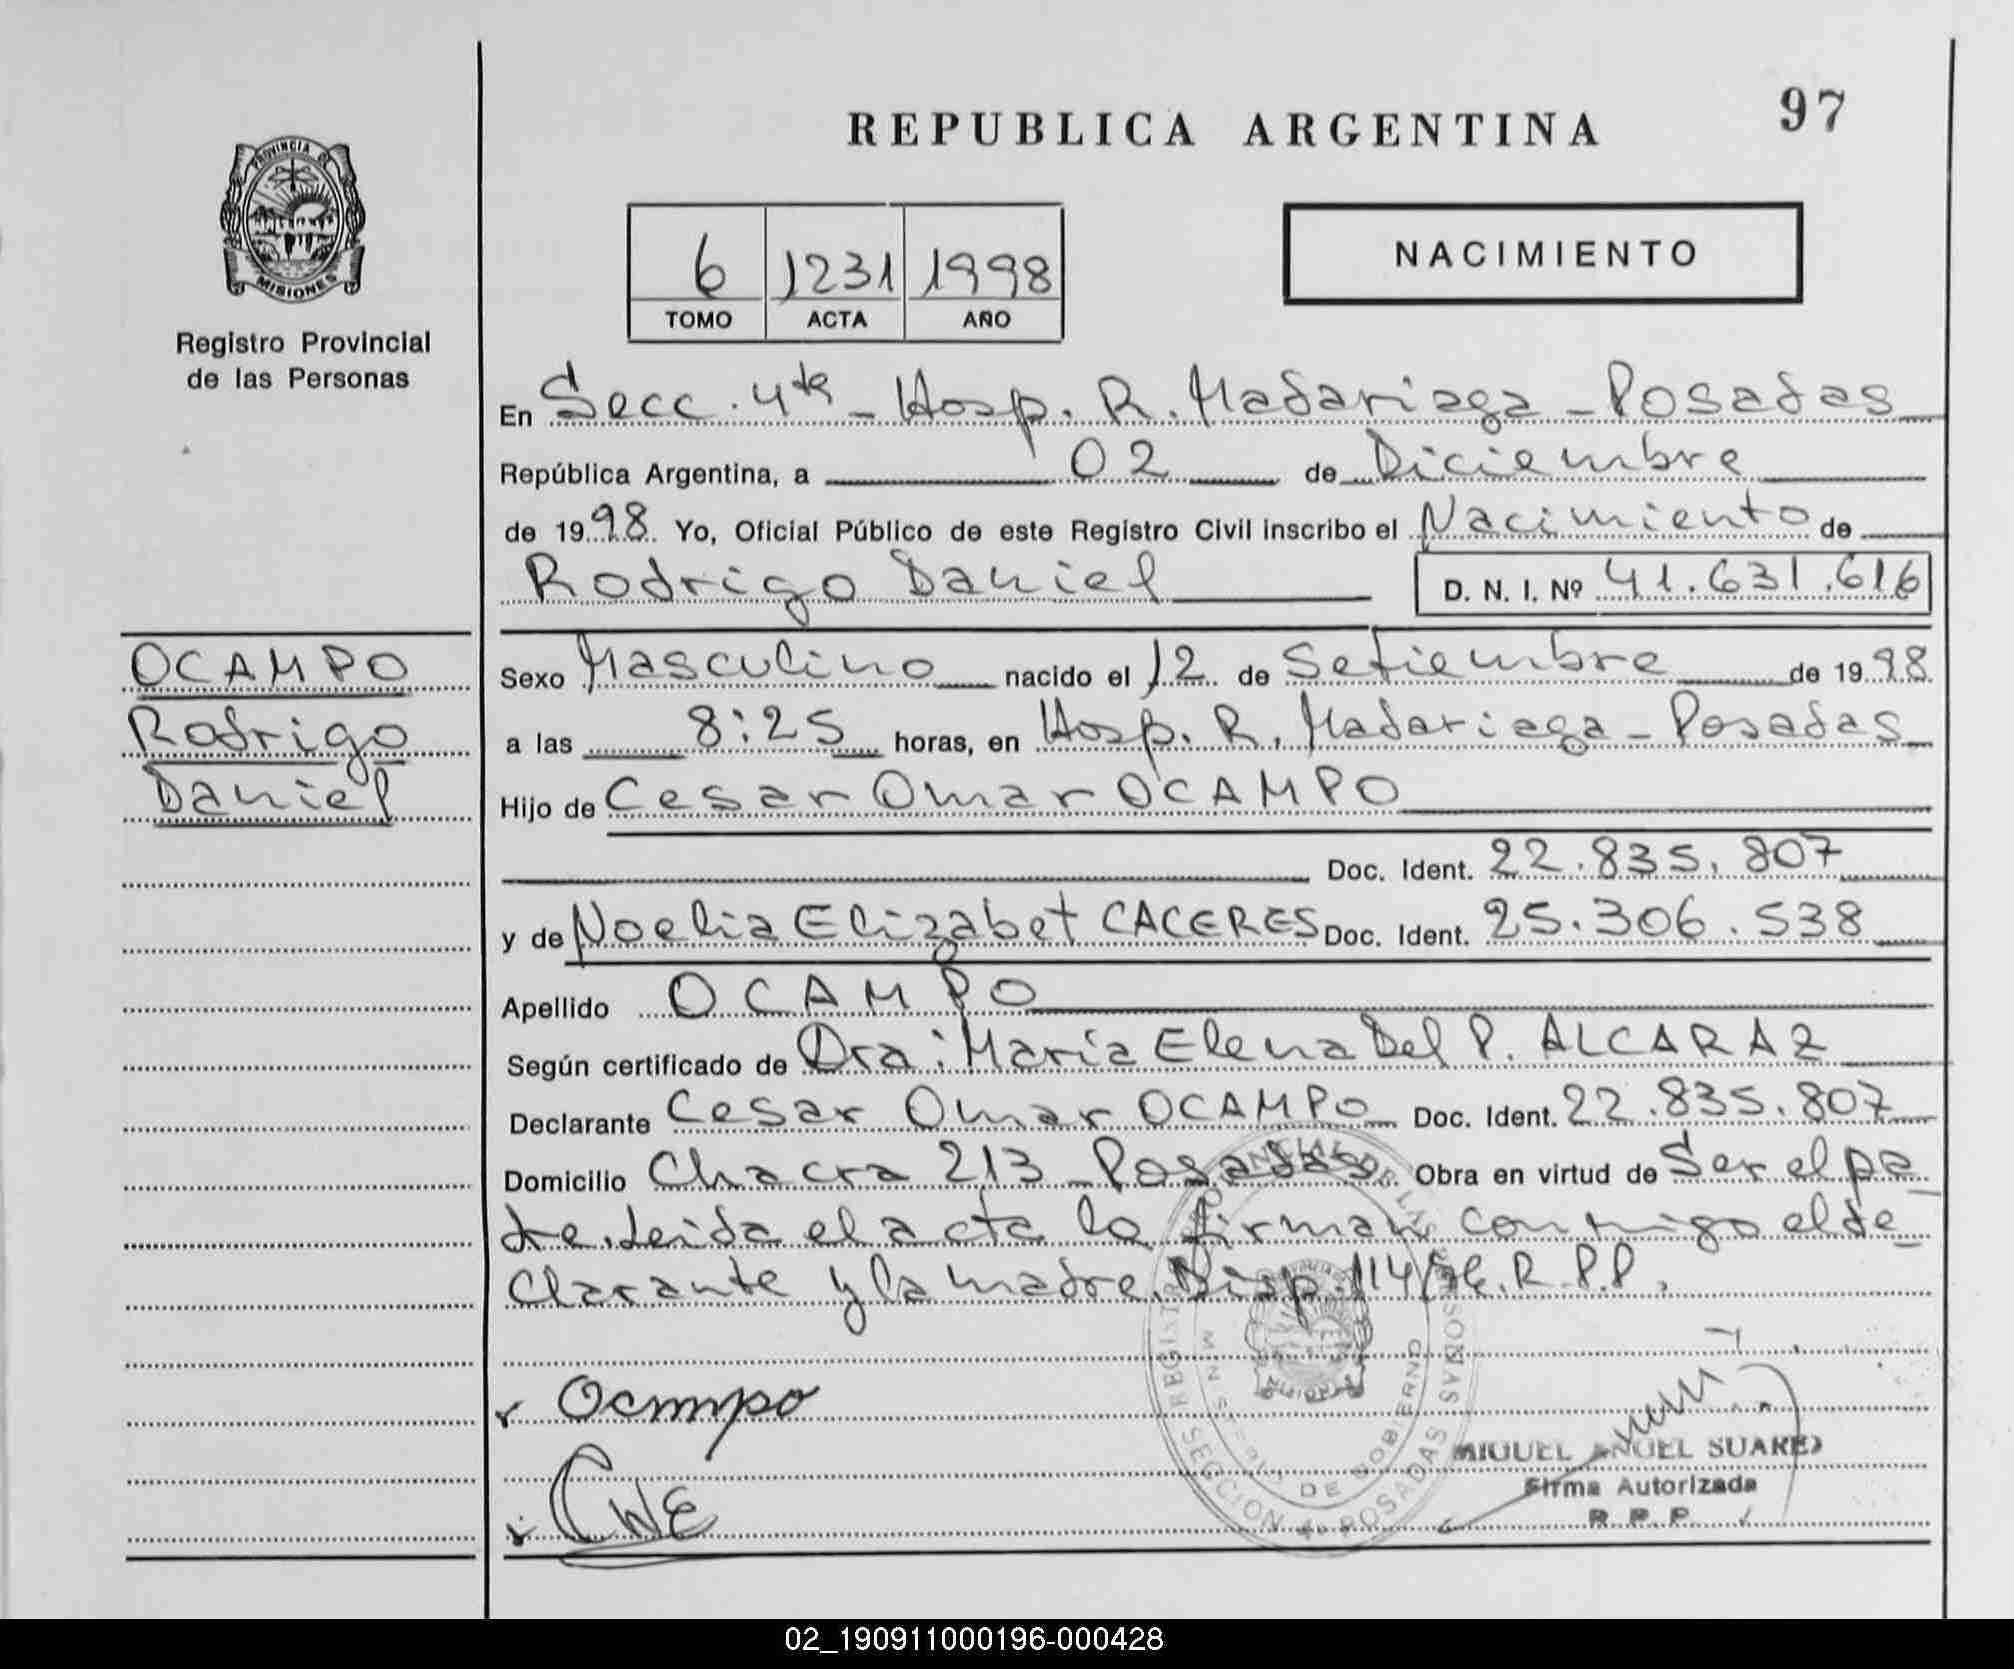 REPUBLICA ARGENTINA
97
PROVINCIA DE
MISIONES
Registro Provincial
de las Personas
6 1231 1998
TOMO ACTA AÑO
NACIMIENTO
En Secc. 4ta - Hosp. R. Madariaga - Posadas
República Argentina, a 02 de Diciembre
de 1998 Yo, Oficial Público de este Registro Civil inscribo el Nacimiento de
Rodrigo Daniel D. N. I. Nº 41.631.616
OCAMPO
Rodrigo
Daniel
Sexo Masculino nacido el 12 de Setiembre de 1998
a las 8:25 horas, en Hosp. R. Madariaga - Posadas
Hijo de Cesar Omar OCAMPO
Doc. Ident. 22.835.807
y de Noelia Elizabet CACERES Doc. Ident. 25.306.538
Apellido OCAMPO
Según certificado de Dra: Maria Elena Del P. ALCARAZ
Declarante Cesar Omar OCAMPO Doc. Ident. 22.835.807
Domicilio Chacra 213 - Posadas Obra en virtud de Ser el pa-
dre. Leida el acta la firman conmigo el de-
clarante y la madre. Disp. 114/ R.P.P.
Ocampo
MIGUEL ANGEL SUAREZ
Firma Autorizada
R. P. P.
SECCION 4a POSADAS
02_190911000196-000428